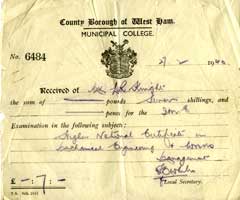 County Borough of West Ham.
MUNICIPAL COLLEGE.
No. 6484
Received of Mr Knight
the sum of pounds Seven shillings, and
pence for the
Examination in the following subject:
Higher National Certificate in
Mechanical Engineering & Works
Management
£ - : 7 : -
Local Secretary.